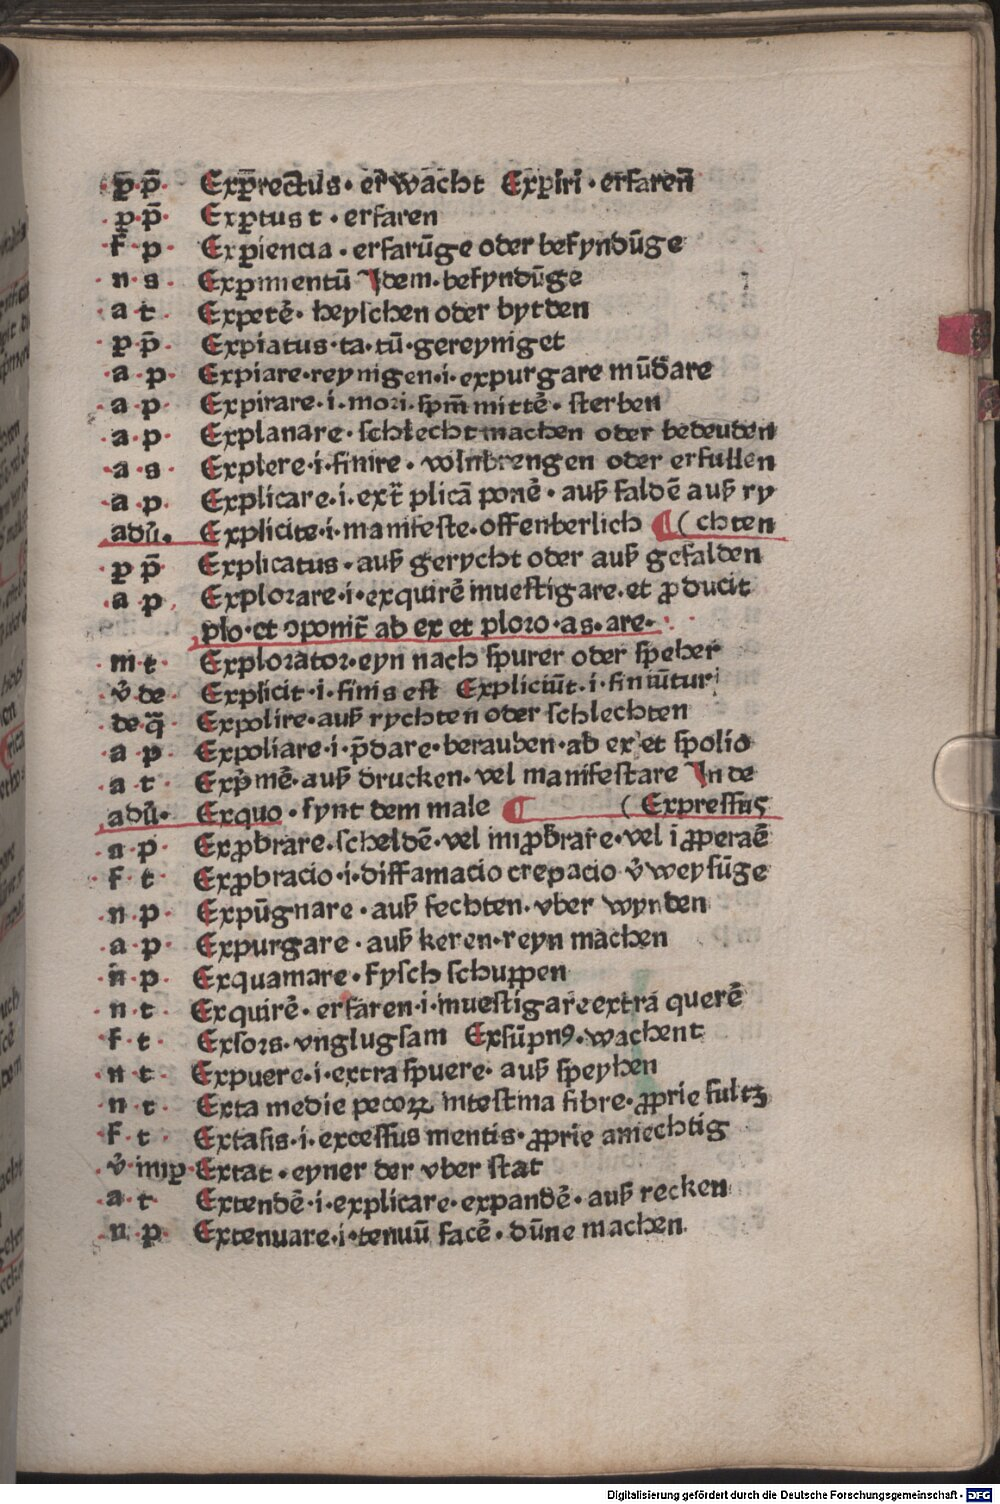 ꝑ p̄ Exꝑrectus · er wacht Exꝑiri · erfaren̄
ꝑ p̄ Exꝑtus t · erfaren
f p Exꝑiencia · erfarūge oder befyndūge
n s Exꝑimentū Idem · befyndūge
a t Expetē · heyschen oder bytden
ꝑ p̄ Expiatus · ta · tū · gereyniget
a p Expiare · reynigen · i · expurgare mūdare
a p Expirare · i · mori · spm̄ mittē · sterben
a p Explanare · schlecht machen oder bedeuden
a s Explere · i · finire · volnbrengen oder erfullen
a p Explicare · i · ext̄ plicā ponē · auß faldē auß ry
adū · Explicite · i · manifeste · offenberlich ¶ ( chten
ꝑ p̄ Explicatus · auß gerycht oder auß gefalden
a p Explorare · i · exquirē inuestigare · et ꝓducit
plo · et ɔponit̄ ab ex et ploro · as · are ·
m t Explorator · eyn nach spurer oder speher
v̄ de Explicit · i · finis est Expliciūt · i · finiūtur
de q̄ Expolire · auß rychten oder schlechten
a p Expoliare · i · p̄dare · berauben · ab ex et spolio
a t Exp̄mē · auß drucken · vel manifestare In de
adū · Exquo · synt dem male ¶ ( Expressus
a p Exꝓbrare · scheldē · vel imꝓbrare · vel iꝓperaē
f t Exꝓbracio · i · diffamacio crepacio v̄weysūge
n p Expūgnare · auß fechten · vber wynden
a p Expurgare · auß keren · reyn machen
n p Exquamare · fysch schuppen
n t Exquirē · erfaren · i · inuestigare extra querē
f t Exsors · vnglugsam Exsūpnꝯ · wachent
n t Expuere · i · extra spuere · auß speyhen
n t Exta medie pecoꝝ intestina fibre · ꝓprie sultz
f t Extasis · i · excessus mentis · ꝓprie amechtig
v̄ imꝑ Extat · eyner der vber stat
a t Extendē · i · explicare · expandē · auß recken
n p Extenuare · i · tenuū facē · dūne machen
Digitalisierung gefördert durch die Deutsche Forschungsgemeinschaft - DFG